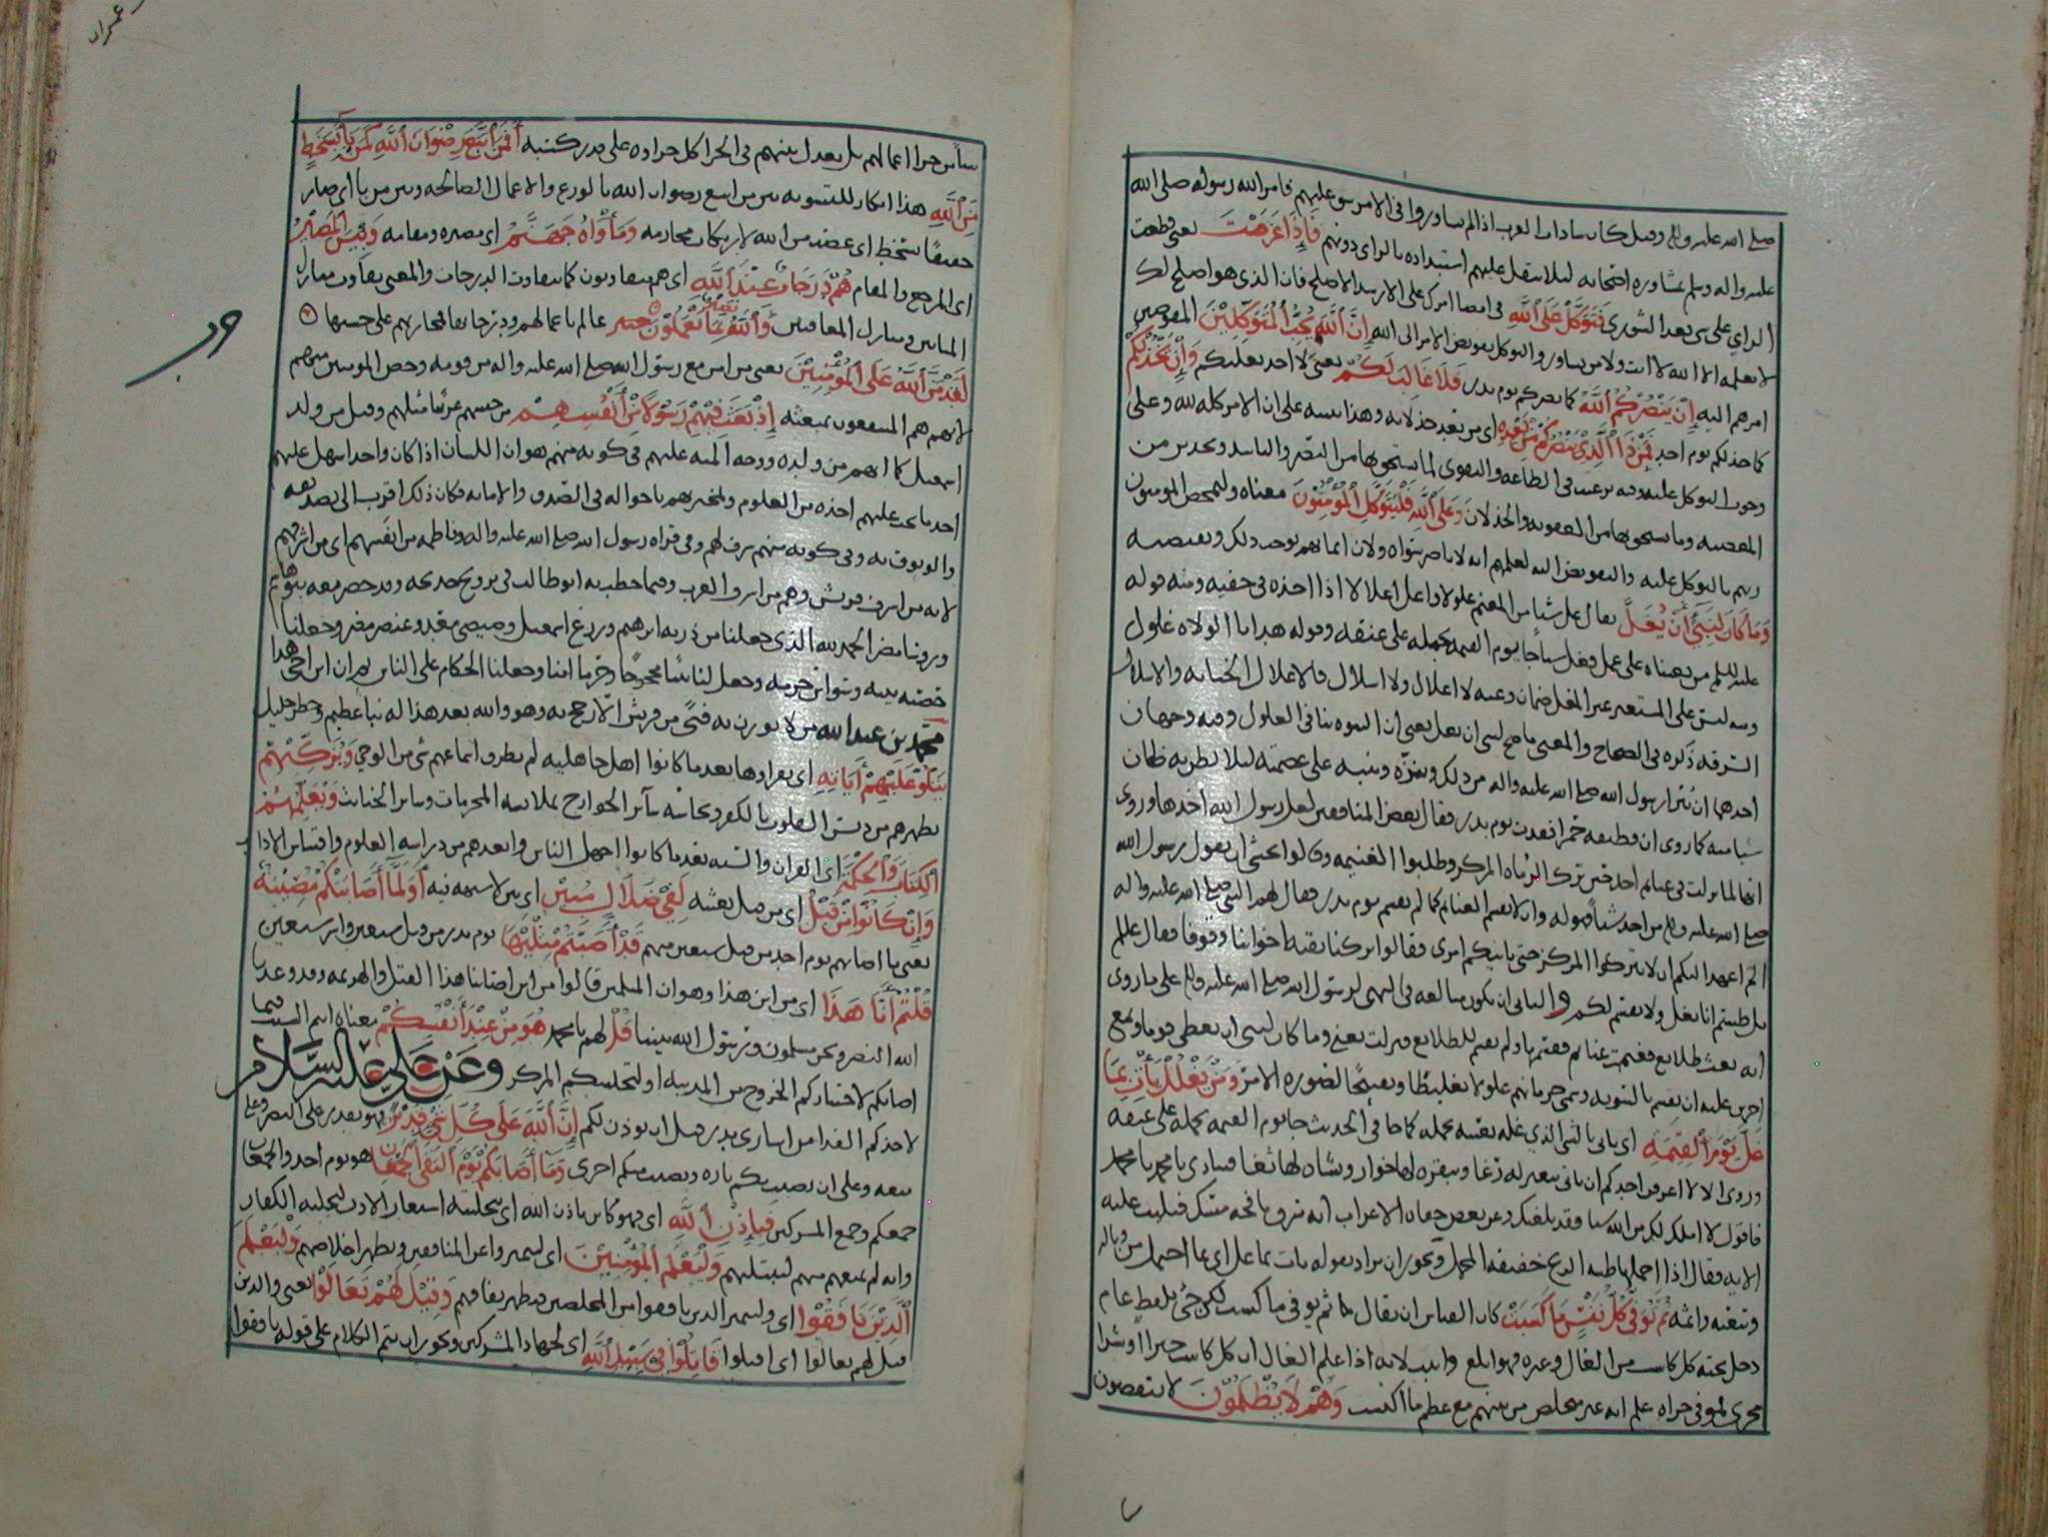 صلى الله عليه واله وقيل كان سادات العرب اذا لم يشاوروا في الامر شق عليهم فامر الله رسوله صلى الله
عليه واله وسلم بمشاوره اصحابه لئلا يثقل عليهم استبداده بالراي دونهم فَإِذَا عَزَمْتَ يعني قطعت
الراي على شي بعد الشورى فَتَوَكَّلْ عَلَى اللَّهِ في امضا امرك على الارشد الاصلح فان الذي هو اصلح لك
لا يعلمه الا الله لا انت ولا من يشاور والتوكل تفويض الامر الى الله إِنَّ اللَّهَ يُحِبُّ الْمُتَوَكِّلِينَ المفوضين
امرهم اليه إِنْ يَنْصُرْكُمُ اللَّهُ كما نصركم يوم بدر فَلَا غَالِبَ لَكُمْ يعني لا احد يغلبكم وَإِنْ يَخْذُلْكُمْ
كما خذلكم يوم احد فَمَنْ ذَا الَّذِي يَنْصُرُكُمْ مِنْ بَعْدِهِ اي من بعد خذلانه وهذا تنبيه على ان الامر كله لله وعلى
وجوب التوكل عليه وفيه ترغيب في الطاعه والتقوى لما يستحق بها من النصر والتاييد وتحذير من
المعصيه وما يستحق بها من العقوبه والخذلان وَعَلَى اللَّهِ فَلْيَتَوَكَّلِ الْمُؤْمِنُونَ معناه وليخص المومنون
ربهم بالتوكل عليه والتفويض اليه لعلمهم انه لا ناصر سواه ولان ايمانهم يوجب ذلك ويقتضيه
وَمَا كَانَ لِنَبِيٍّ أَنْ يَغُلَّ يقال غل شيا من المغنم غلولا واغل اغلالا اذا اخذه في خفيه ومنه قوله
عليه السلم من بعثناه على عمل فغل شياً جا يوم القيمه يحمله على عنقه وقوله هدايا الولاه غلول
ومنه ليس على المستعير غير المغل ضمان وعنه لا اغلال ولا اسلال فالاغلال الخيانه والاسلال
السرقه ذكره في الصحاح والمعنى ما صح لنبي ان يغل يعني ان النبوه تنافي الغلول وفيه وجهان
احدهما ان يبرا رسول الله صلى الله عليه واله من ذلك وينزه وينبه على عصمته لئلا يظن به ظان
شيا منه كما روي ان قطيفه حمرا فقدت يوم بدر فقال بعض المنافقين لعل رسول الله اخذها وروي
انها لما نزلت في غنايم احد حين ترك الرماه المركز وطلبوا الغنيمه وقالوا نخشى ان يقول رسول الله
صلى الله عليه واله من اخذ شياً فهو له وان لا يقسم الغنايم كما لم يقسم يوم بدر فقال لهم النبي صلى الله عليه واله
الم اعهد اليكم ان لا تتركوا المركز حتى ياتيكم امري فقالوا تركنا بقيه اخواننا وقوفا فقال عليلم
بل ظننتم انا نغل ولا نقسم لكم والثاني ان يكون مبالغه في النهي لرسول الله صلى الله عليه واله على ما روي
انه بعث طلايع فغنمت غنايم فقسمها ولم يقسم للطلايع فنزلت يعني وما كان لنبي ان يعطي قوما ويمنع
اخرين عليه ان يقسم بالسويه وسمى حرمانهم غلولا تغليظا وتقبيحا لصوره الامر وَمَنْ يَغْلُلْ يَأْتِ بِمَا
غَلَّ يَوْمَ الْقِيَمَةِ اي ياتي بالشي الذي غله بعينه يحمله كما جا في الحديث جا يوم القيمه يحمله على عنقه
وروي الا لا اعرفن احدكم ان ياتي ببعير له رغا وببقره لها خوار وبشاه لها ثغا فينادي يا محمد يا محمد
فاقول لا املك لك من الله شيا فقد بلغتك وعن بعض جفاه الاعراب انه سرق نافجه مسك فتليت عليه
الايه فقال اذا احملها طيبه الريح خفيفه المحمل ويجوز ان يراد بقوله يات بما غل اي بما احتمل من وباله
وتبعته واثمه ثُمَّ تُوَفَّى كُلُّ نَفْسٍ مَا كَسَبَتْ كان القياس ان يقال ثم يوفى ما كسبت لكن جئ بلفظ عام
دخل تحته كل كاسب من الغال وغيره فهو ابلغ واثبت لانه اذا علم الغال ان كل كاسب خيرا او شرا
مجزي فموفى جزاه علم انه غير متخلص من بينهم مع عظم ما اكتسب وَهُمْ لَا يُظْلَمُونَ لا ينقصون
شيأ من جزا اعمالهم بل يعدل بينهم في الجزا كل جزاوه على قدر كسبه أَفَمَنِ اتَّبَعَ رِضْوَانَ اللَّهِ كَمَنْ بَاءَ بِسَخَطٍ
مِنَ اللَّهِ هذا انكار للتسويه بين من اتبع رضوان الله بالورع والاعمال الصالحه وبين من با اي صار
حقيقا بسخط اي غضب من الله لارتكاب محارمه وَمَأْوَاهُ جَهَنَّمُ اي مصيره ومقامه وَبِئْسَ الْمَصِيرُ
اي المرجع والمقام هُمْ دَرَجَاتٌ عِنْدَ اللَّهِ اي هم متفاوتون كما تتفاوت الدرجات والمعنى تفاوت منازل
المثابين ومنازل المعاقبين وَاللَّهُ بَصِيرٌ بِمَا يَعْمَلُونَ عالم باعمالهم ودرجاتها فمجازيهم على حسبها
لَقَدْ مَنَّ اللَّهُ عَلَى الْمُؤْمِنِينَ يعني من امن مع رسول الله صلى الله عليه واله من قومه وخص المومنين منهم
لانهم هم المنتفعون بمبعثه إِذْ بَعَثَ فِيهِمْ رَسُولًا مِنْ أَنْفُسِهِمْ من جنسهم عربيا مثلهم وقيل من ولد
اسمعيل كما انهم من ولده ووجه المنه عليهم في كونه منهم هو ان اللسان اذا كان واحدا سهل عليهم
اخذ ما يجب عليهم اخذه من العلوم ولمخبرهم باحواله في الصدق والامانه فكان ذلك اقرب الى تصديقه
والوثوق به وفي كونه منهم شرف لهم وفي قراه رسول الله صلى الله عليه واله وفاطمه من انفسهم اي من اشرفهم
لانه من اشرف قريش وهم من اشراف العرب وفيما خطب به ابو طالب في تزويج خديجه وقد حضر معه بنو هاشم
وروسا مضر الحمد لله الذي جعلنا من ذريه ابرهيم وزرع اسمعيل وضيضي معد وعنصر مضر وجعلنا
حضنه بيته وسواس حرمه وجعل لنا بيتا محجوجا وحرما امنا وجعلنا الحكام على الناس ثم ان ابن اخي هذا
محمد بن عبد الله من لا يوزن به فتى من قريش الا رجح به وهو والله بعد هذا له نبا عظيم وخطر جليل
يَتْلُو عَلَيْهِمْ آيَاتِهِ اي يقراوها بعد ما كانوا اهل جاهليه لم يطرق اسماعهم شي من الوحي وَيُزَكِّيهِمْ
يطهرهم من دنس القلوب بالكفر ونجاسه سائر الجوارح بملابسه المحرمات وساير الخبائث وَيُعَلِّمُهُمُ
الْكِتَابَ وَالْحِكْمَةَ اي القران والسنه بعد ما كانوا اجهل الناس وابعدهم من دراسه العلوم واقتباس الاداب
وَإِنْ كَانُوا مِنْ قَبْلُ اي من قبل بعثته لَفِي ضَلَالٍ مُبِينٍ اي بين لا شبهه فيه أَوَلَمَّا أَصَابَتْكُمْ مُصِيبَةٌ
يعني ما اصابهم يوم احد من قتل سبعين منهم قَدْ أَصَبْتُمْ مِثْلَيْهَا يوم بدر من قتل سبعين واسر سبعين
قُلْتُمْ أَنَّى هَذَا اي من اين هذا وهو ان المسلمين قالوا من اين اصابنا هذا القتل والهزيمه وقد وعدنا
الله النصر ونحن مسلمون ورسول الله بيننا قُلْ لهم يا محمد هُوَ مِنْ عِنْدِ أَنْفُسِكُمْ معناه انتم السبب فيما
اصابكم لاختياركم الخروج من المدينه او لتخليتكم المركز وَعَنْ عَلِيٍّ عَلَيْهِ السَّلَامُ
لاخذكم الفدا من اسارى بدر قبل ان يوذن لكم إِنَّ اللَّهَ عَلَى كُلِّ شَيْءٍ قَدِيرٌ فهو يقدر على النصر وعلى
منعه وعلى ان يصيب بكم تاره ويصيب منكم اخرى وَمَا أَصَابَكُمْ يَوْمَ الْتَقَى الْجَمْعَانِ هو يوم احد والجمعان
جمعكم وجمع المشركين فَبِإِذْنِ اللَّهِ اي فهو كاين باذن الله اي بتخليته استعار الاذن لتخليه الكفار
وانه لم يمنعهم منهم ليبتليهم وَلِيَعْلَمَ الْمُؤْمِنِينَ اي ليتميزوا عن المنافقين ويظهر اخلاصهم وَلِيَعْلَمَ
الَّذِينَ نَافَقُوا اي وليتميز الذين نافقوا من المخلصين فيظهر نفاقهم وَقِيلَ لَهُمْ تَعَالَوْا يعني والذين
قيل لهم تعالوا اي اقبلوا قَاتِلُوا فِي سَبِيلِ اللَّهِ اي لجهاد المشركين ويجوز ان يتم الكلام على قوله نافقوا